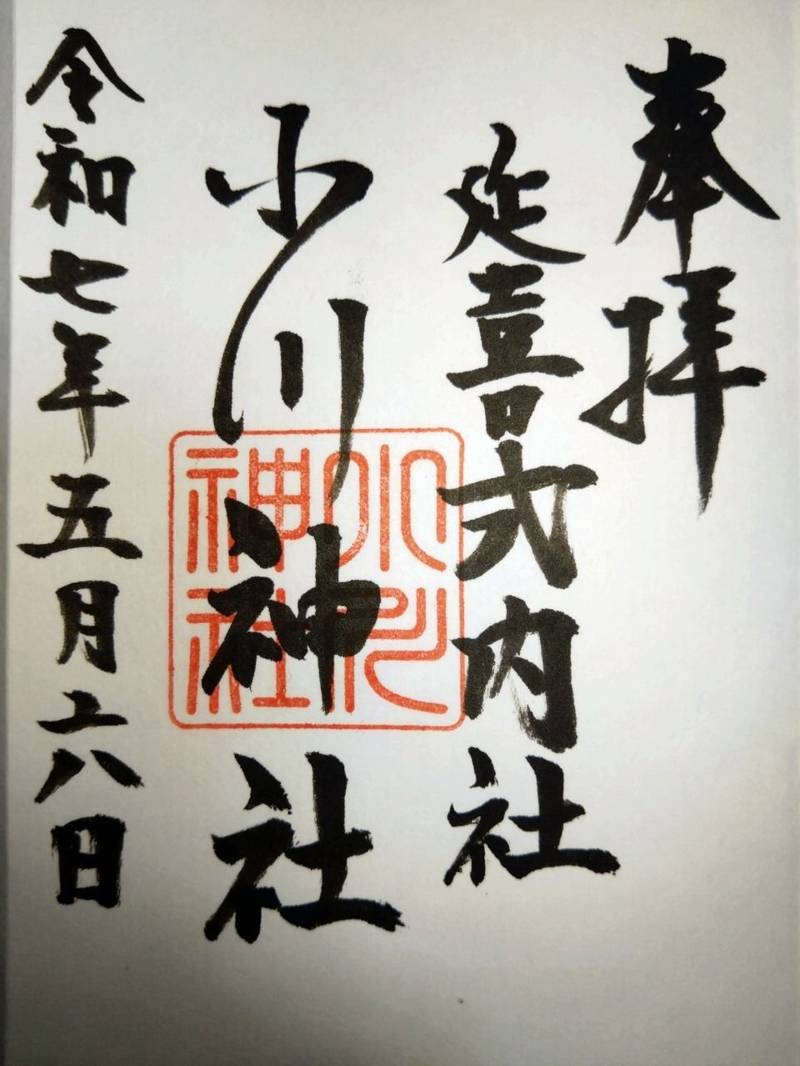 奉拝
延喜式内社
小川神社
令和七年五月六日
小川神社